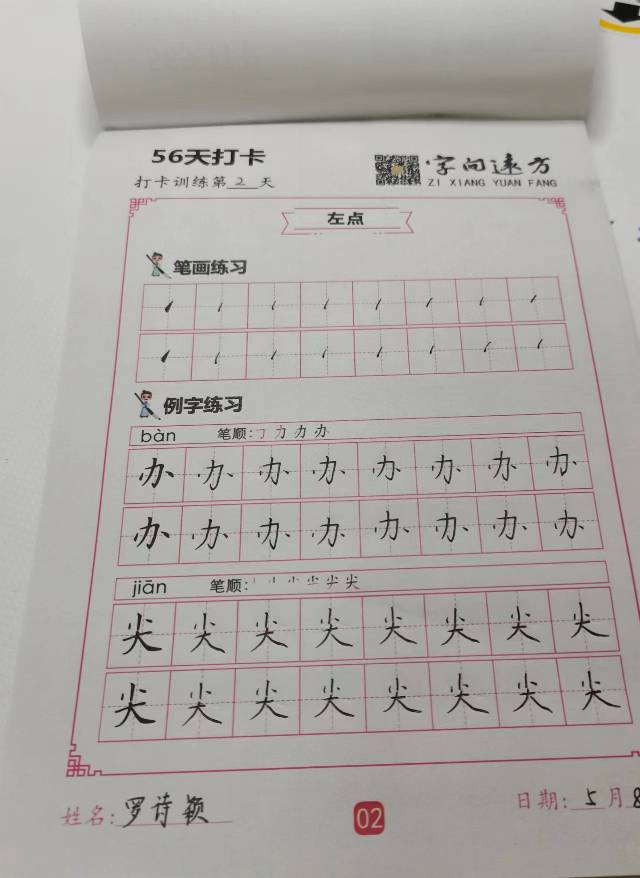 56天打卡
打卡训练第2天
字向远方
ZI XIANG YUAN FANG
左点
笔画练习
例字练习
bàn 笔顺:
办 办 办 办 办 办 办 办
办 办 办 办 办 办 办 办
jiān 笔顺:
尖 尖 尖 尖 尖 尖 尖 尖
尖 尖 尖 尖 尖 尖 尖 尖
姓名: 罗诗颖
02
日期: 5月8